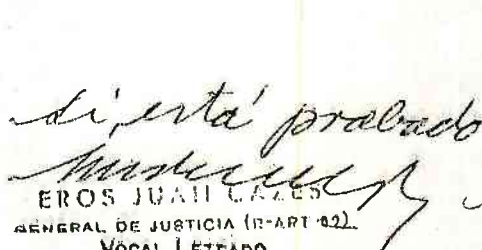 sí, está probado
EROS JUAN CAZES
GENERAL DE JUSTICIA (R-ART 62)
VOCAL LETRADO